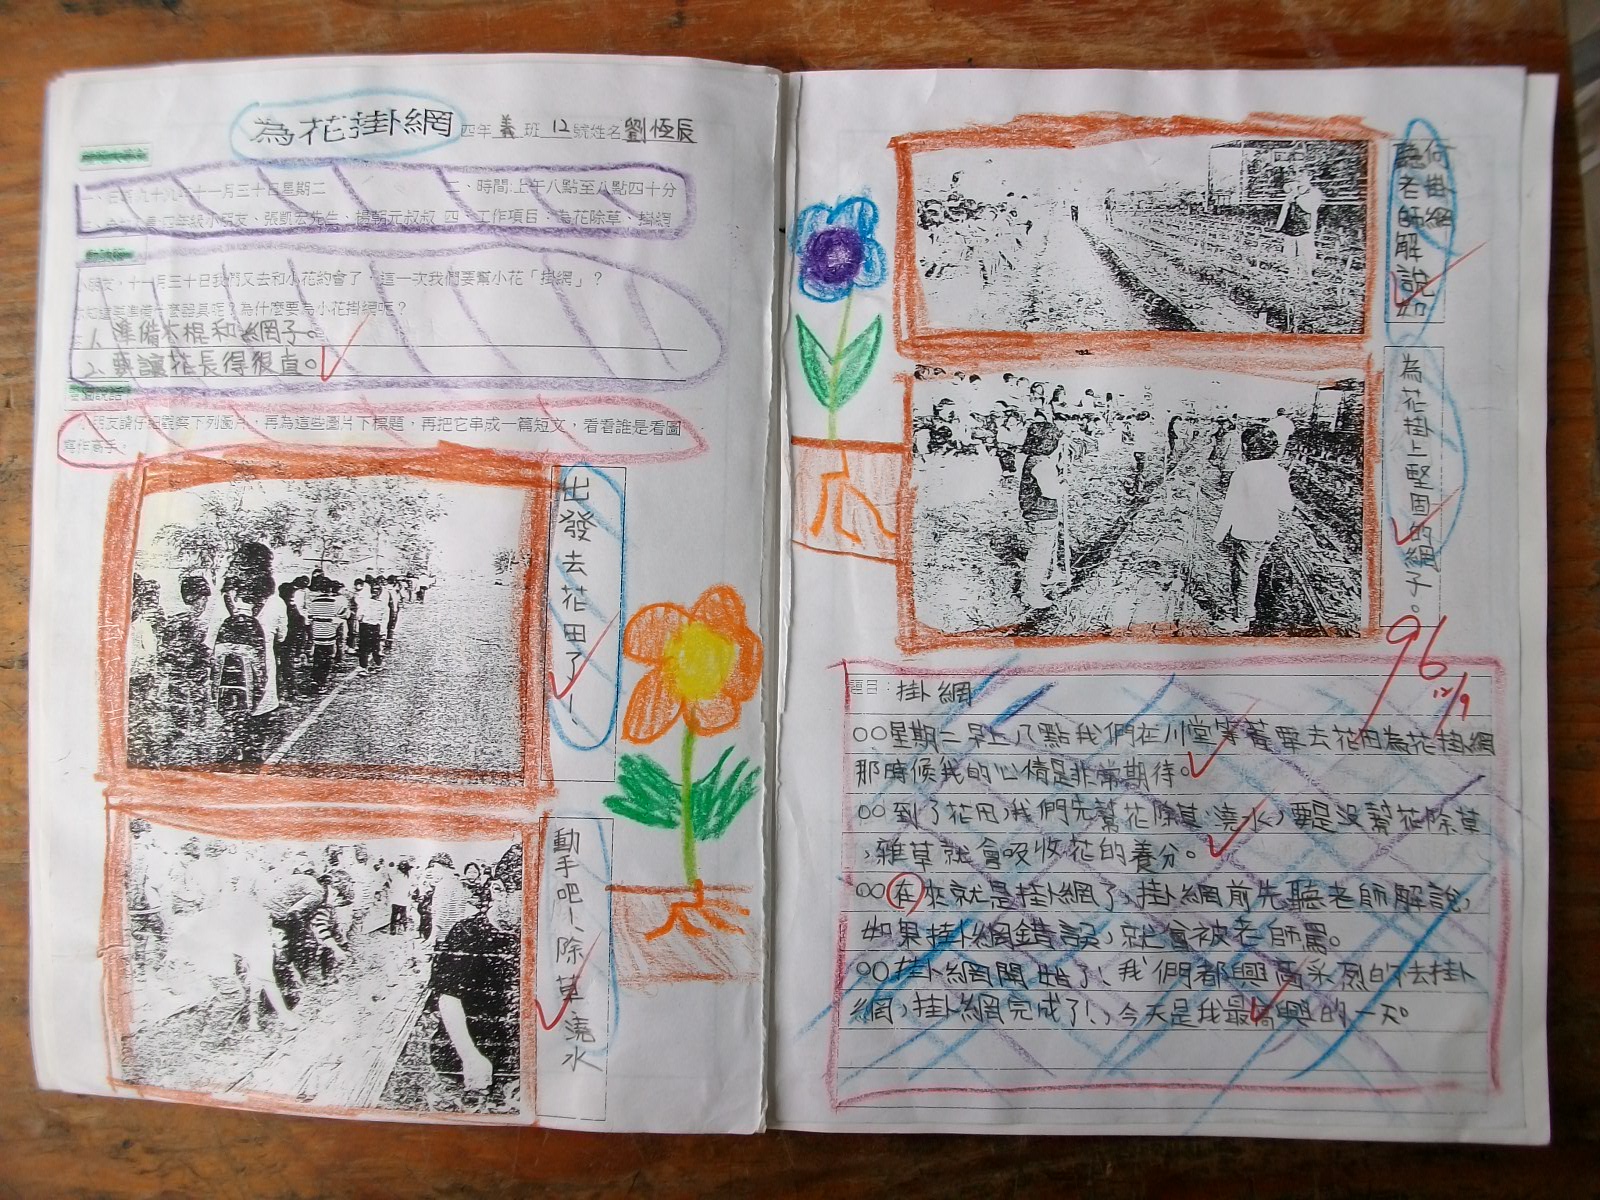 為花掛網 四年 義 班 12 號姓名 劉恆辰
十一月三十日星期二 二、時間:上午八點至八點四十分
年級小朋友、張凱宏先生、楊朝元叔叔 四、工作項目:為花除草、掛網
小朋友,十一月三十日我們又去和小花約會了,這一次我們要幫小花「掛網」?
為什麼要為小花掛網呢?
1、準備木棍和網子。
2、要讓花長得很直。
看圖說話:
小朋友請仔細觀察下列圖片,再為這些圖片下標題,再把它串成一篇短文,看看誰是看圖
寫作高手。
出發去花田了!
動手吧!、除草、澆水
聽老師解說如
何掛網
為花掛上堅固的網子。
96
12/9
題目:掛網
○○星期二早上八點我們在川堂等著要去花田為花掛網
那時候我的心情是非常期待。
○○到了花田,我們先幫花除草、澆水,要是沒幫花除草
,雜草就會吸收花的養分。
○○在來就是掛網了,掛網前先聽老師解說,
如果掛網錯誤,就會被老師罵。
○○掛網開始了!我們都興高采烈的去掛
網,掛網完成了!,今天是我最高興的一天。